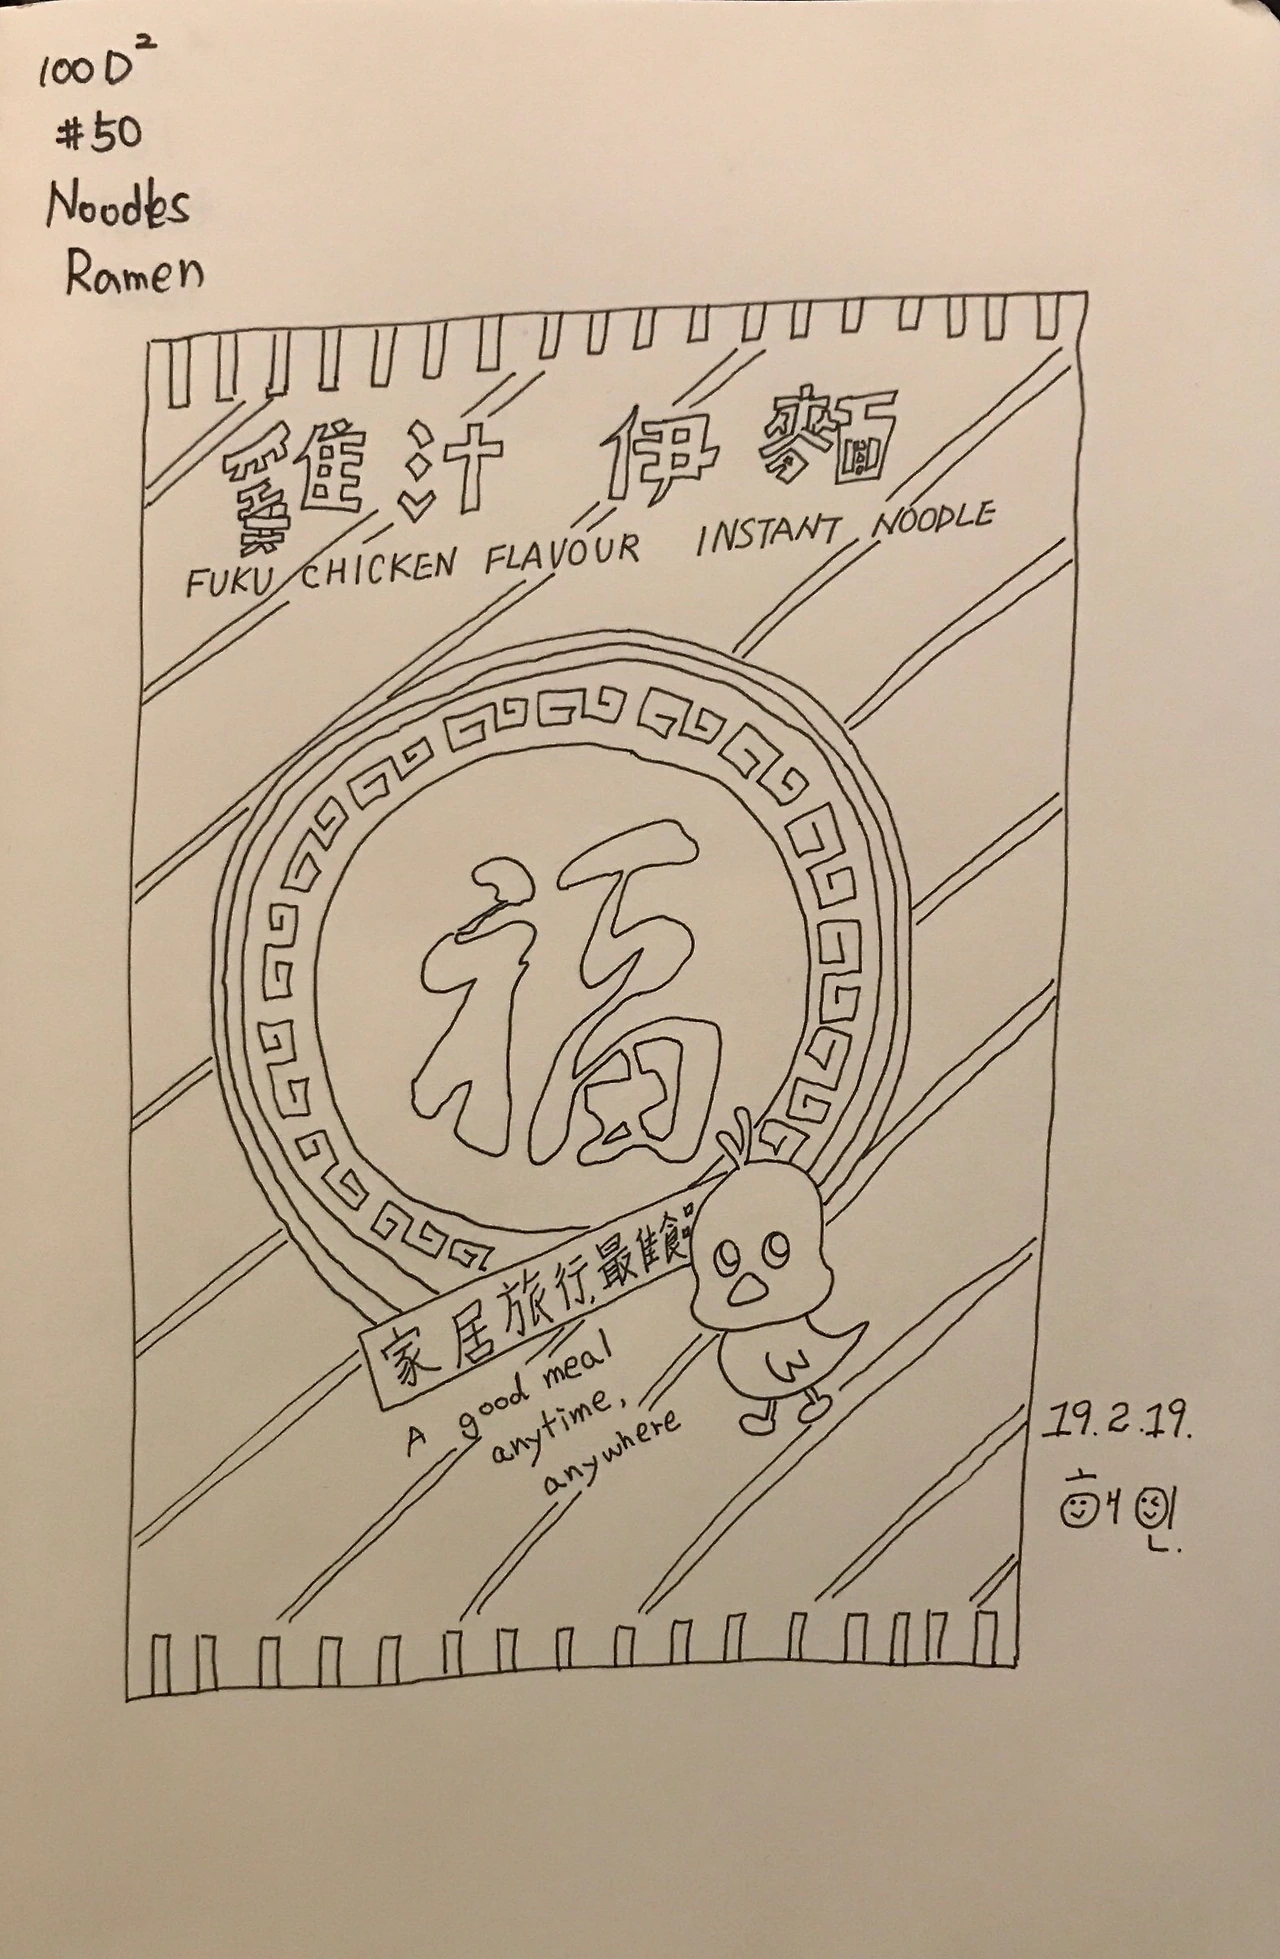 100D²
#50
Noodles
Ramen
雞汁 伊麵
FUKU CHICKEN FLAVOUR INSTANT NOODLE
福
家居旅行最佳食品
A good meal
anytime,
anywhere
19.2.19.
혜인